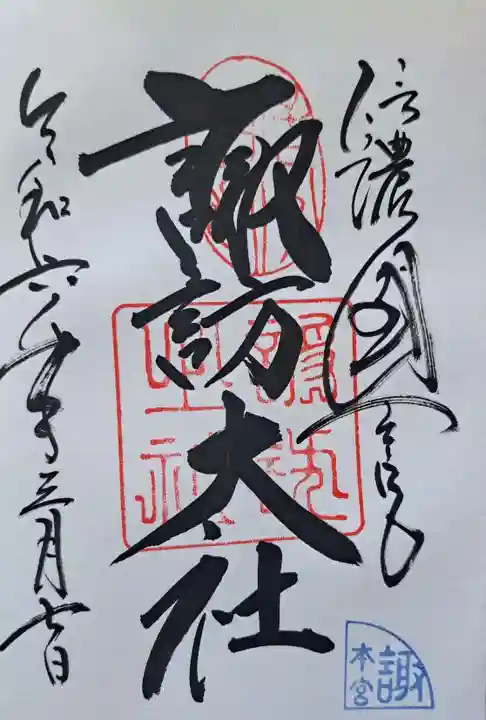 信濃國一宮
諏訪大社
令和六年三月七日
諏
本宮